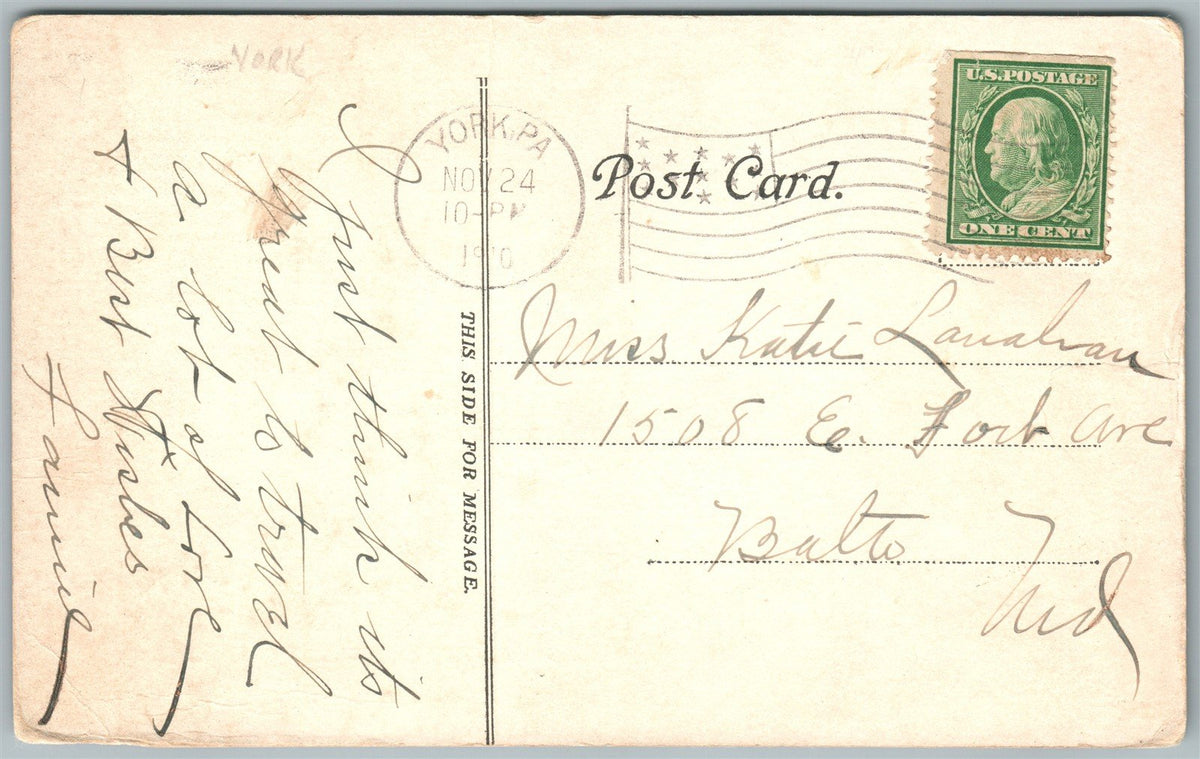 YORK
YORK, PA
NOV 24
10-PM
1910
Post Card.
U.S. POSTAGE
ONE CENT
THIS SIDE FOR MESSAGE.
I just think its
great to travel
a lot of Love
+ Best Wishes
Fannie
Miss Katie Lanahan
1508 E. Fort Ave
Balto
Md